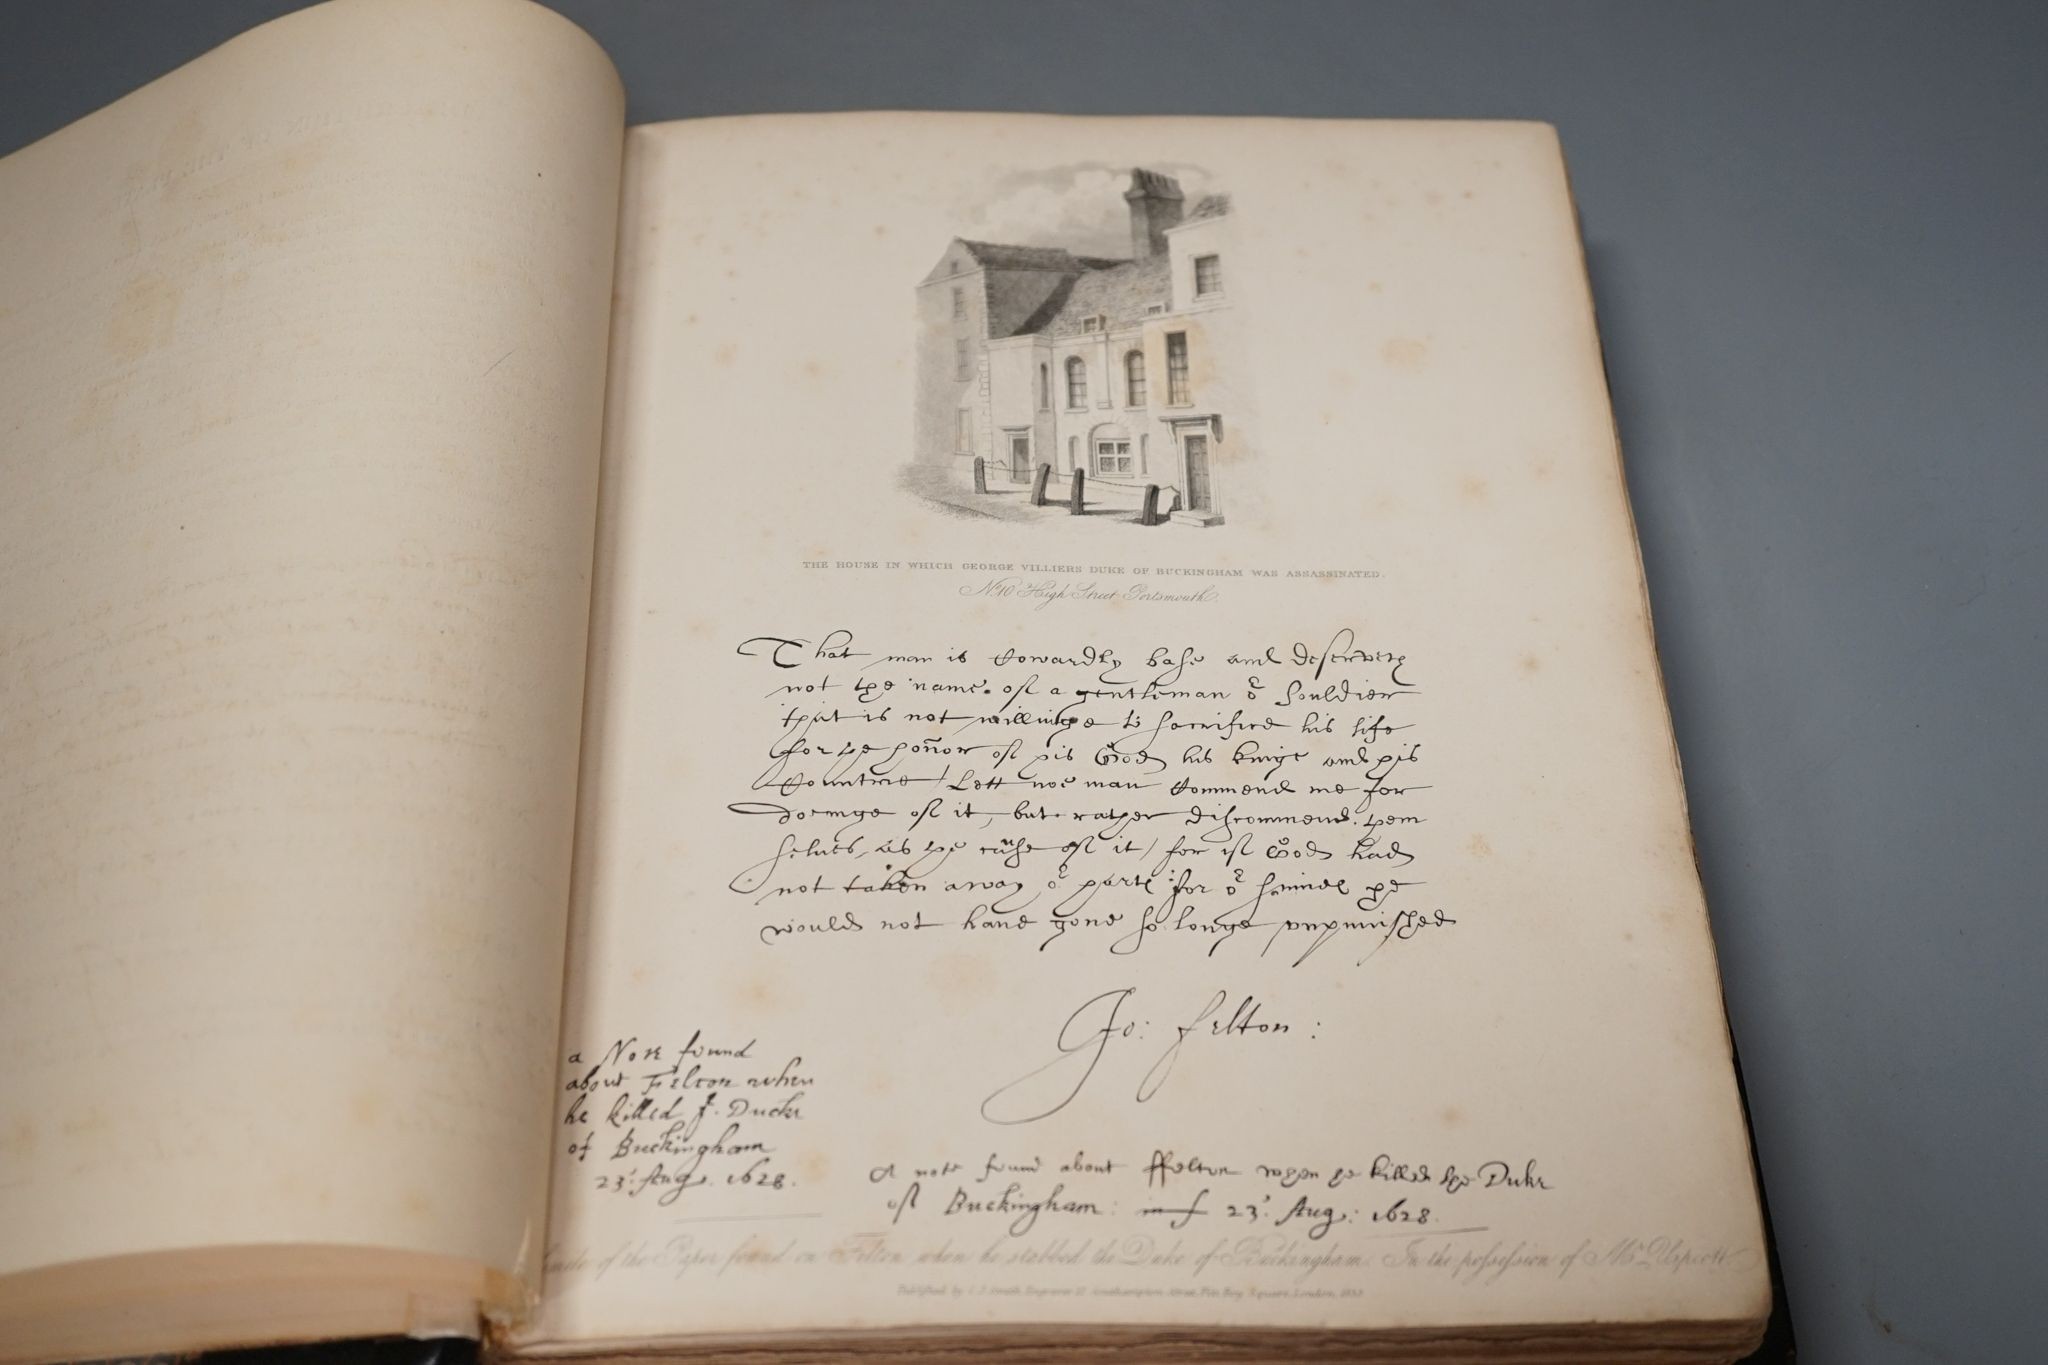 THE HOUSE IN WHICH GEORGE VILLIERS DUKE OF BUCKINGHAM WAS ASSASSINATED.
No. 10 High Street Portsmouth.
That man is cowardly base and deserveth
not the name of a gentleman or souldier
that is not willinge to sacrifice his life
for the honor of his God his kinge and his
Countrie / Lett noe man commend me for
doeinge of it, but rather discommend them
selves as the cause of it / for if God had
not taken away or harts for or sinnes he
would not have gone so longe unpunished
Jo: Felton:
a Note found
about Felton when
he killed ye. Duke
of Buckingham
23. Aug. 1628.
A note found about ffelton when he killed the Duke
of Buckingham: 23. Aug: 1628.
of the Paper found on Felton when he stabbed the Duke of Buckingham. In the possession of Mr. Upcott.
Published by C. J. Smith, Southampton Street, Square, London,